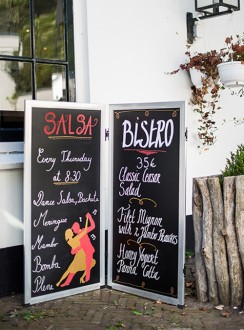 SALSA
Every Thursday
at 8:30
Dance Salsa, Bachata
Merengue
Mambo
Bomba
Plena
Bistro
35€
Classic Caesar
Salad
Filet Mignon
with 2 Jumbo Prawns
Honey Yogurt
Panna Cotta